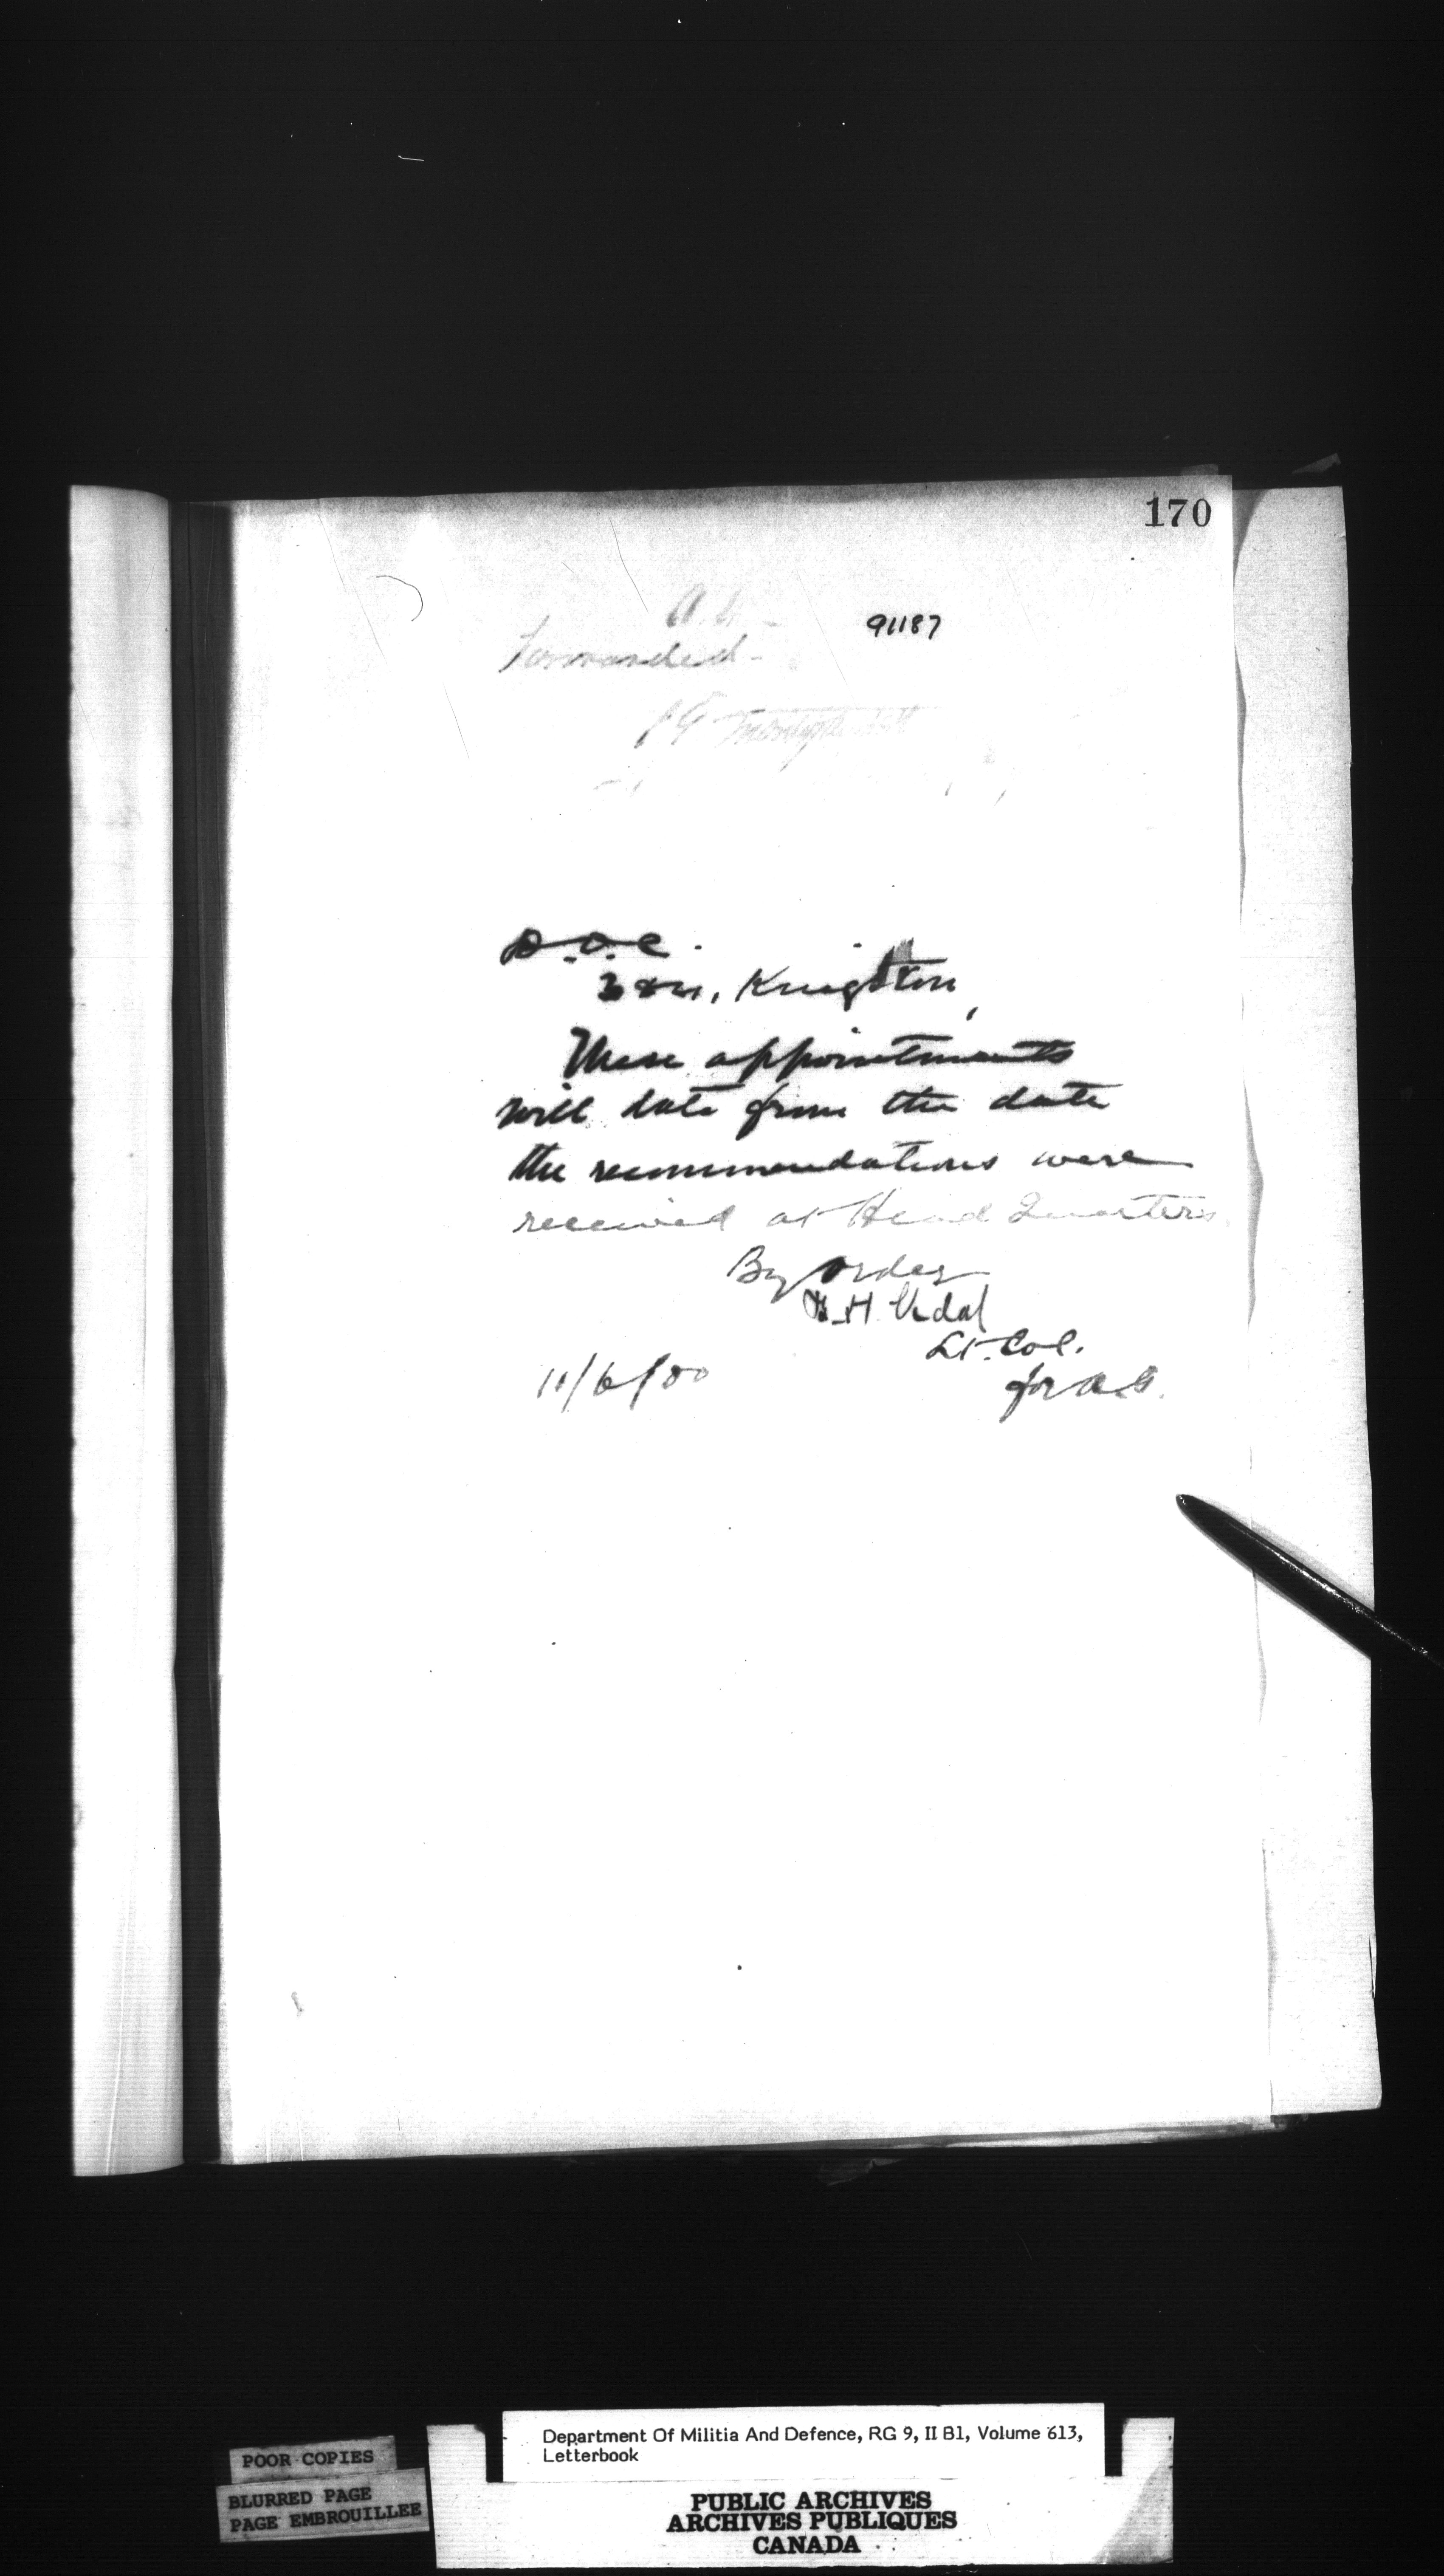 170
91187
Forwarded -
D.O.C.
3 & 4, Kingston,
These appointments
will date from the date
the recommendations were
received at Head Quarters.
By order
B.H Vidal
Lt. Col.
for A.G.
11/6/00
POOR COPIES
BLURRED PAGE
PAGE EMBROUILLEE
Department Of Militia And Defence, RG 9, II B1, Volume 613,
Letterbook
PUBLIC ARCHIVES
ARCHIVES PUBLIQUES
CANADA